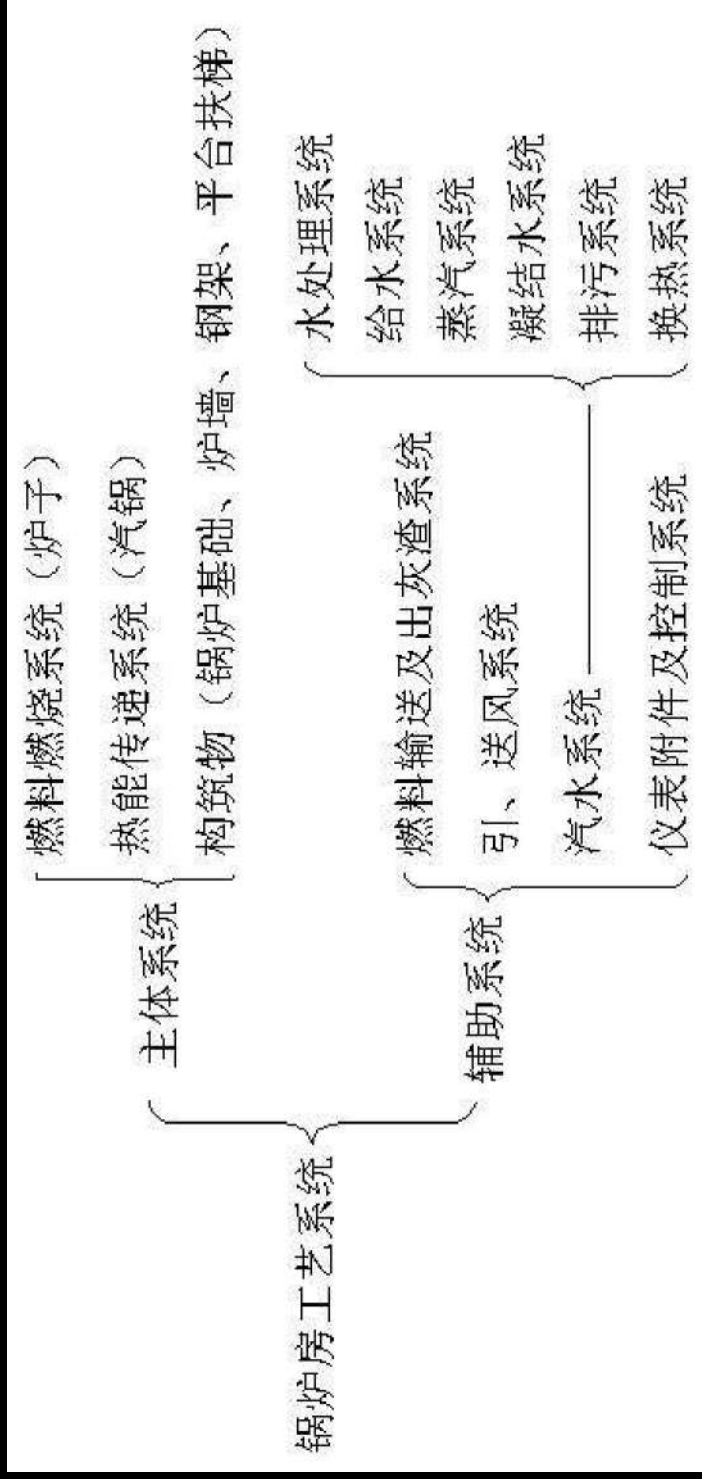 锅炉房工艺系统
主体系统
燃料燃烧系统（炉子）
热能传递系统（汽锅）
构筑物（锅炉基础、炉墙、钢架、平台扶梯）
辅助系统
燃料输送及出灰渣系统
引、送风系统
汽水系统
水处理系统
给水系统
蒸汽系统
凝结水系统
排污系统
换热系统
仪表附件及控制系统